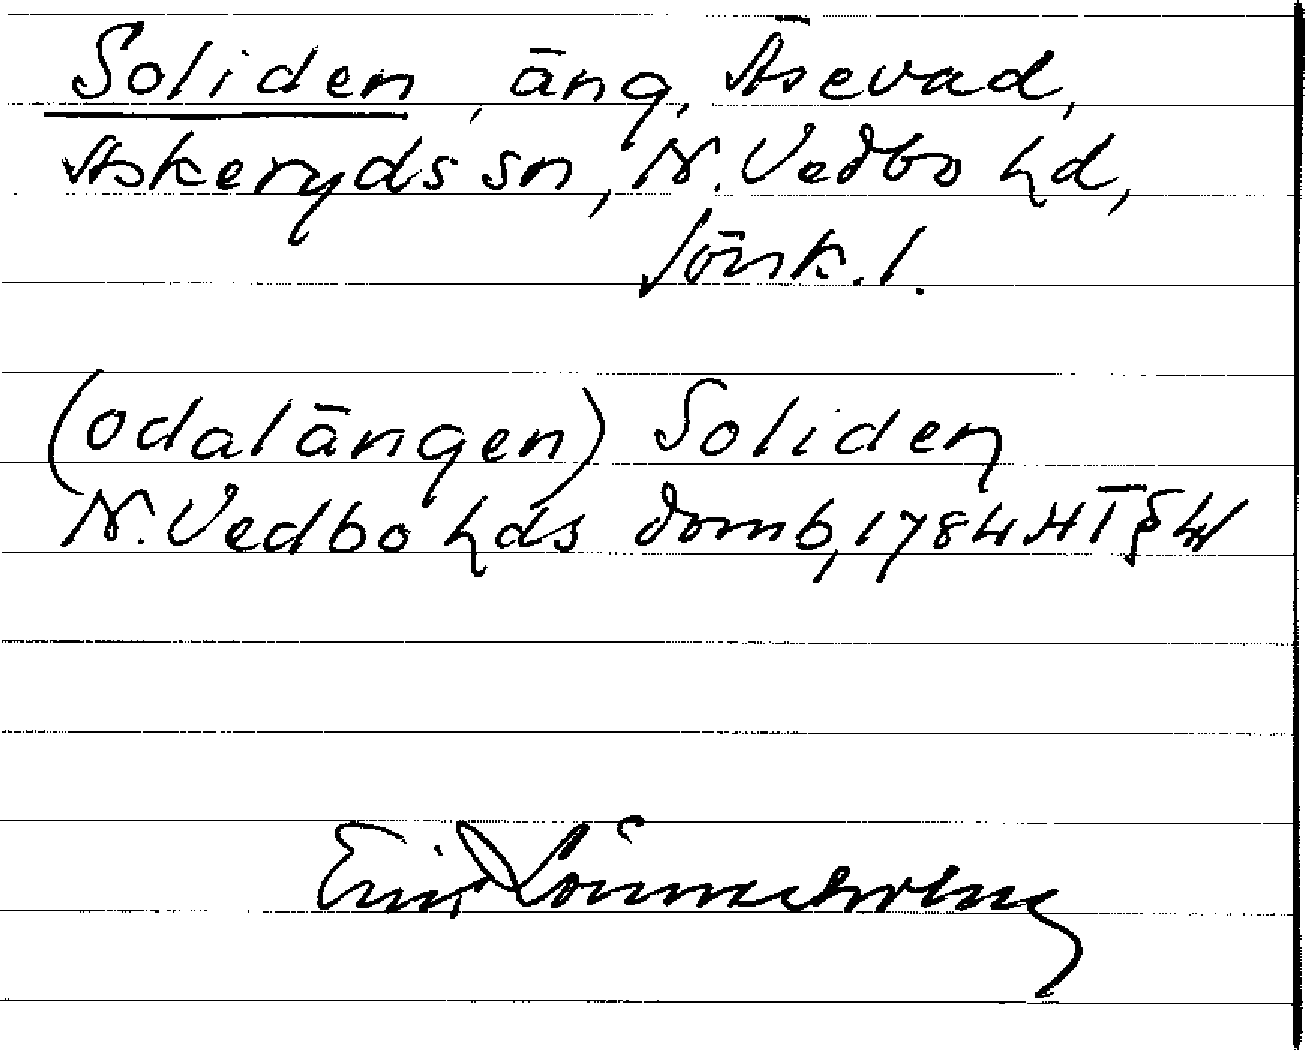 Soliden, äng, Äsevad,
Askeryds sn, N. Vedbo hd,
Jönk. l.
(odalängen) Soliden
N. Vedbo hds domb, 1784 HT § 44
Erik